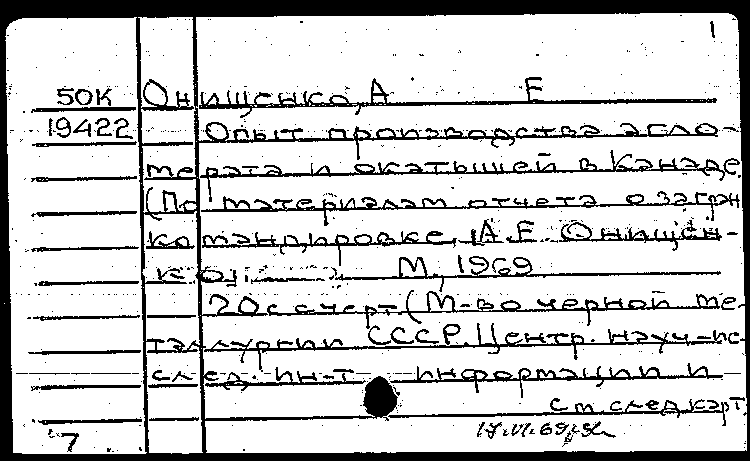 1
50К Онищенко, А Е
19422 Опыт производства агло-
мерата и окатышей в Канаде
(По материалам отчета о загран
командировке, А.Е. Онищен-
ко) М, 1969
20с с черт (М-во черной ме-
таллургии СССР. Центр. науч-ис
след. ин-т информации и
см след карт
7 17.VI.69